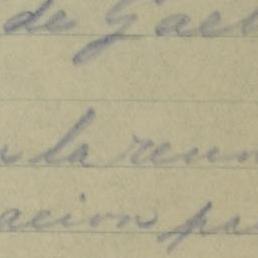 de Gael
la reun
acion pa